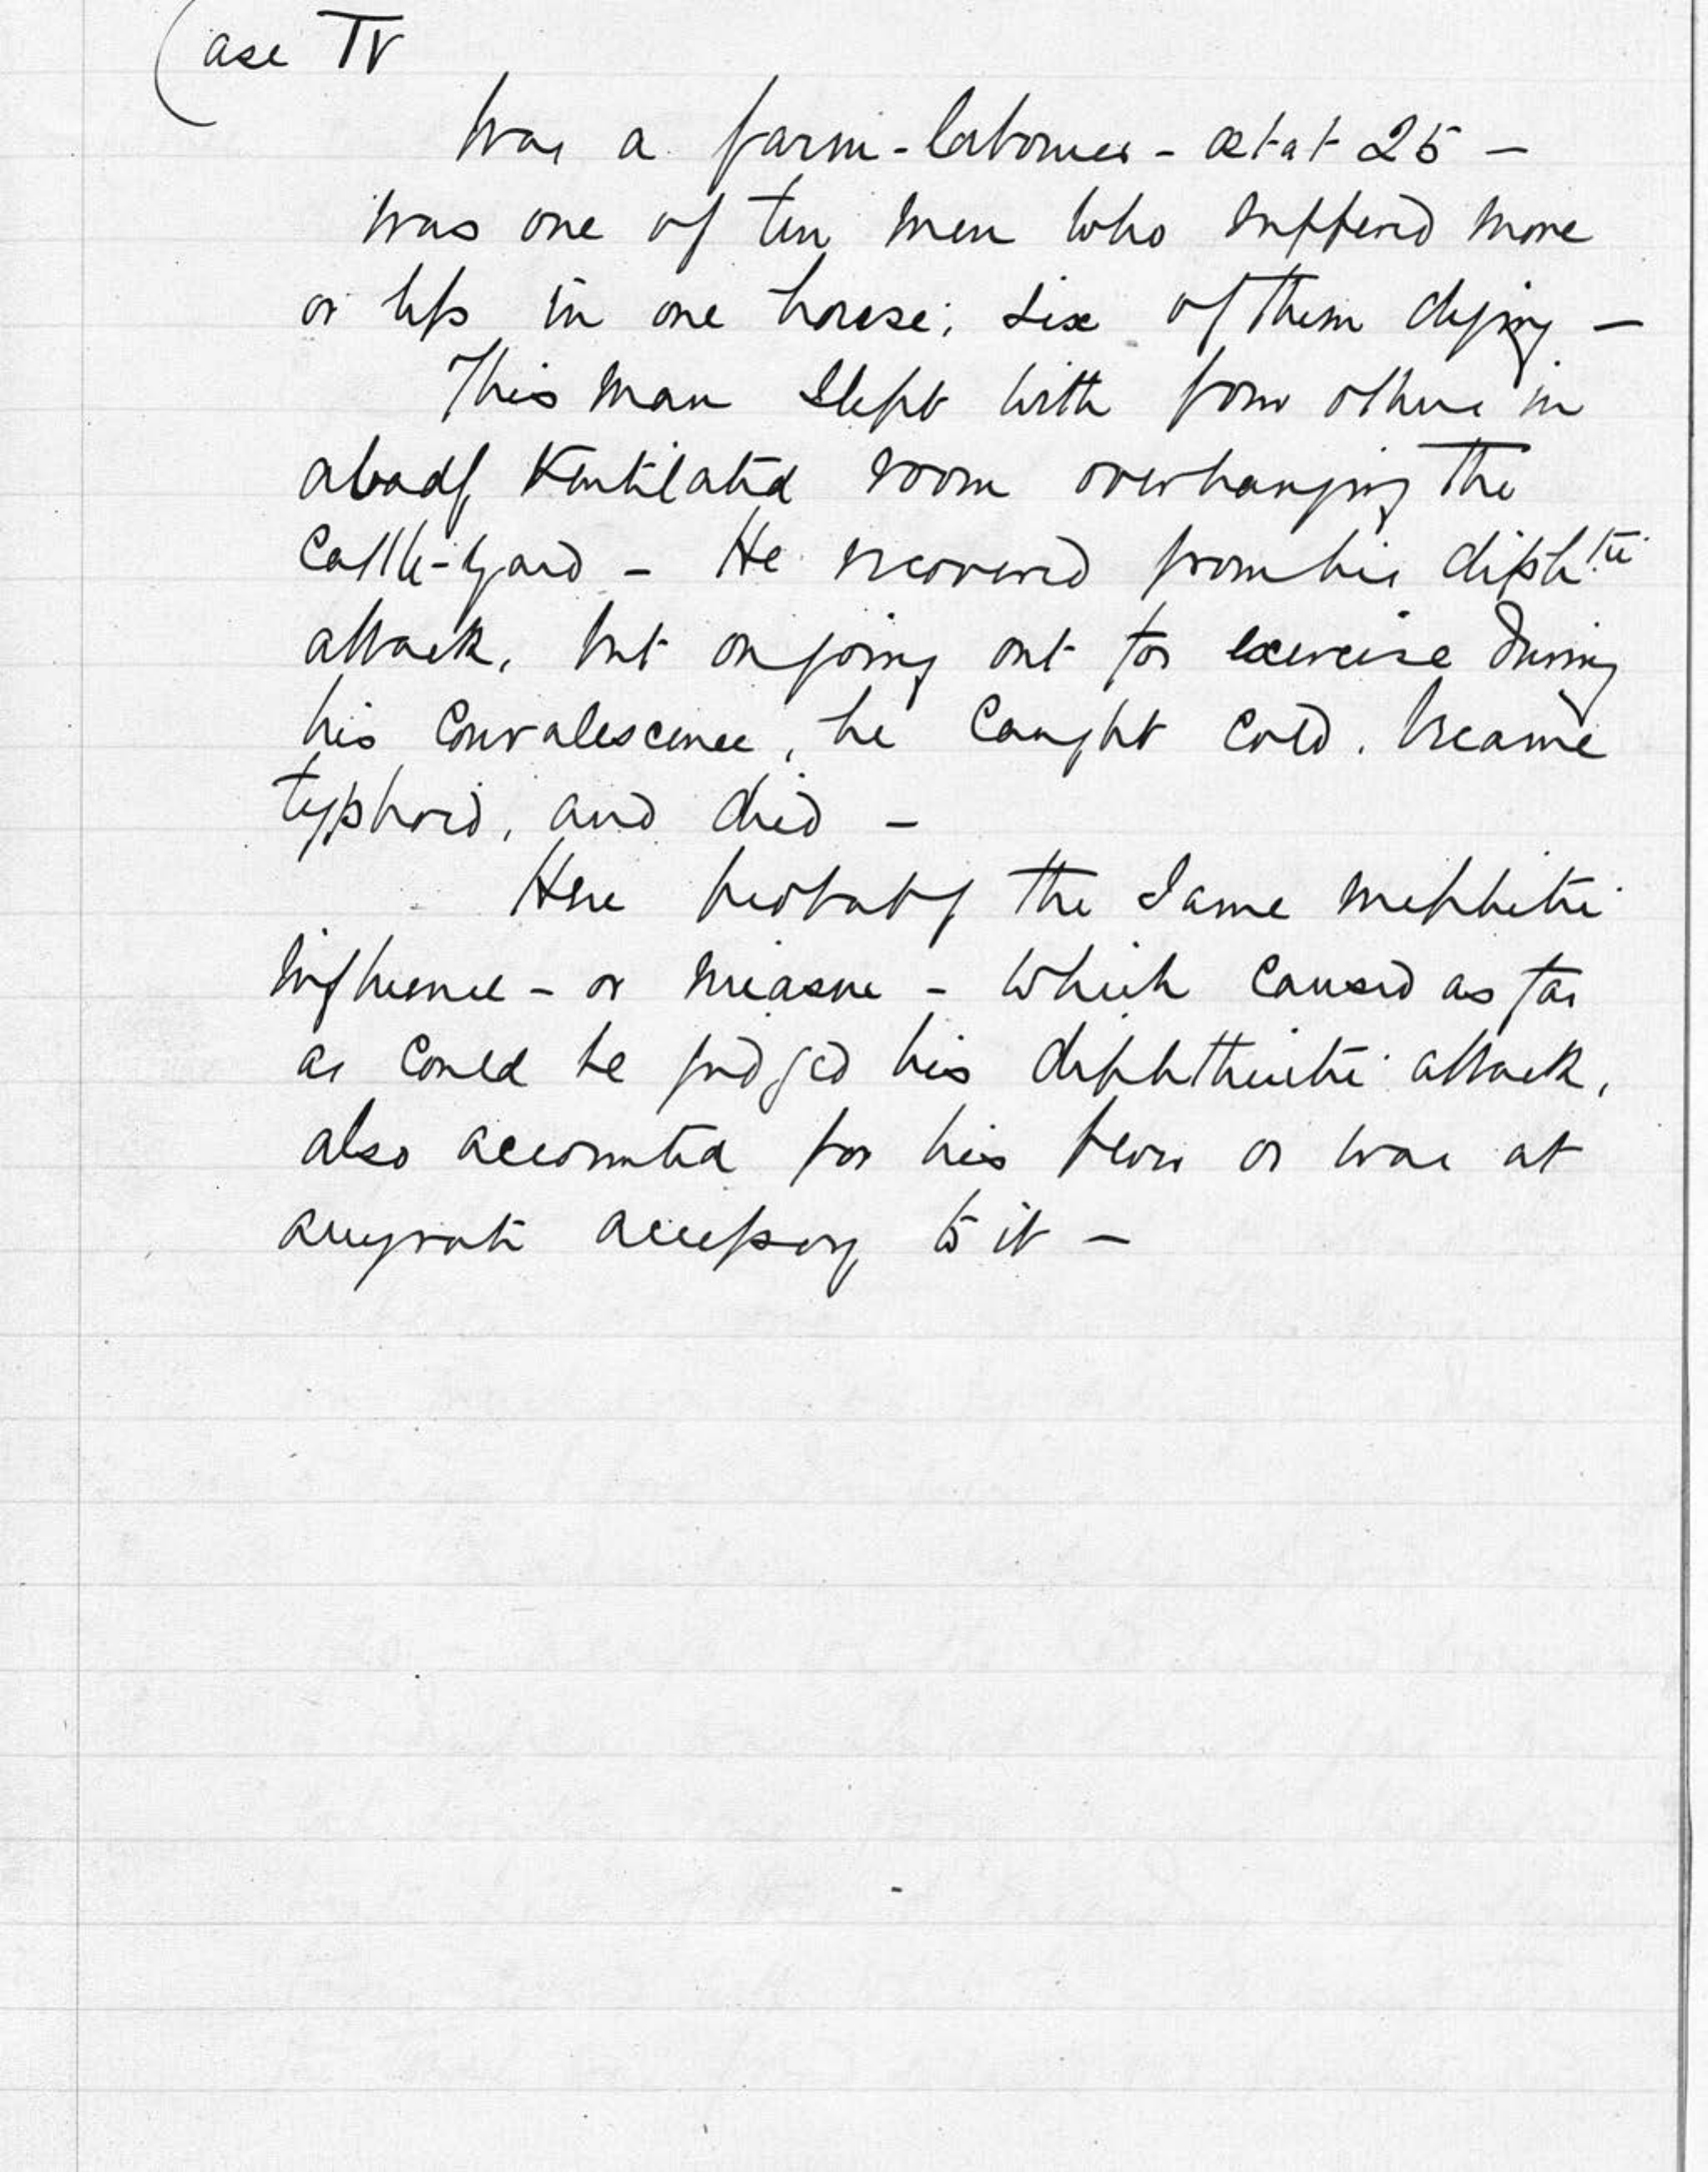 Case IV
Was a farm-labourer - ætat 25 -
was one of ten men who suffered more
or less in one house; six of them dying -
This man slept with four others in
a badly ventilated room overhanging the
Cattle-yard - He recovered from his diphtic
attack, but on going out for exercise during
his convalescence, he caught cold, became
typhoid, and died -
Here probably the same mephitic
influence - or miasm - which caused as far
as could be judged his diphtheritic attack,
also accounted for his fever or was at
anyrate accessory to it -